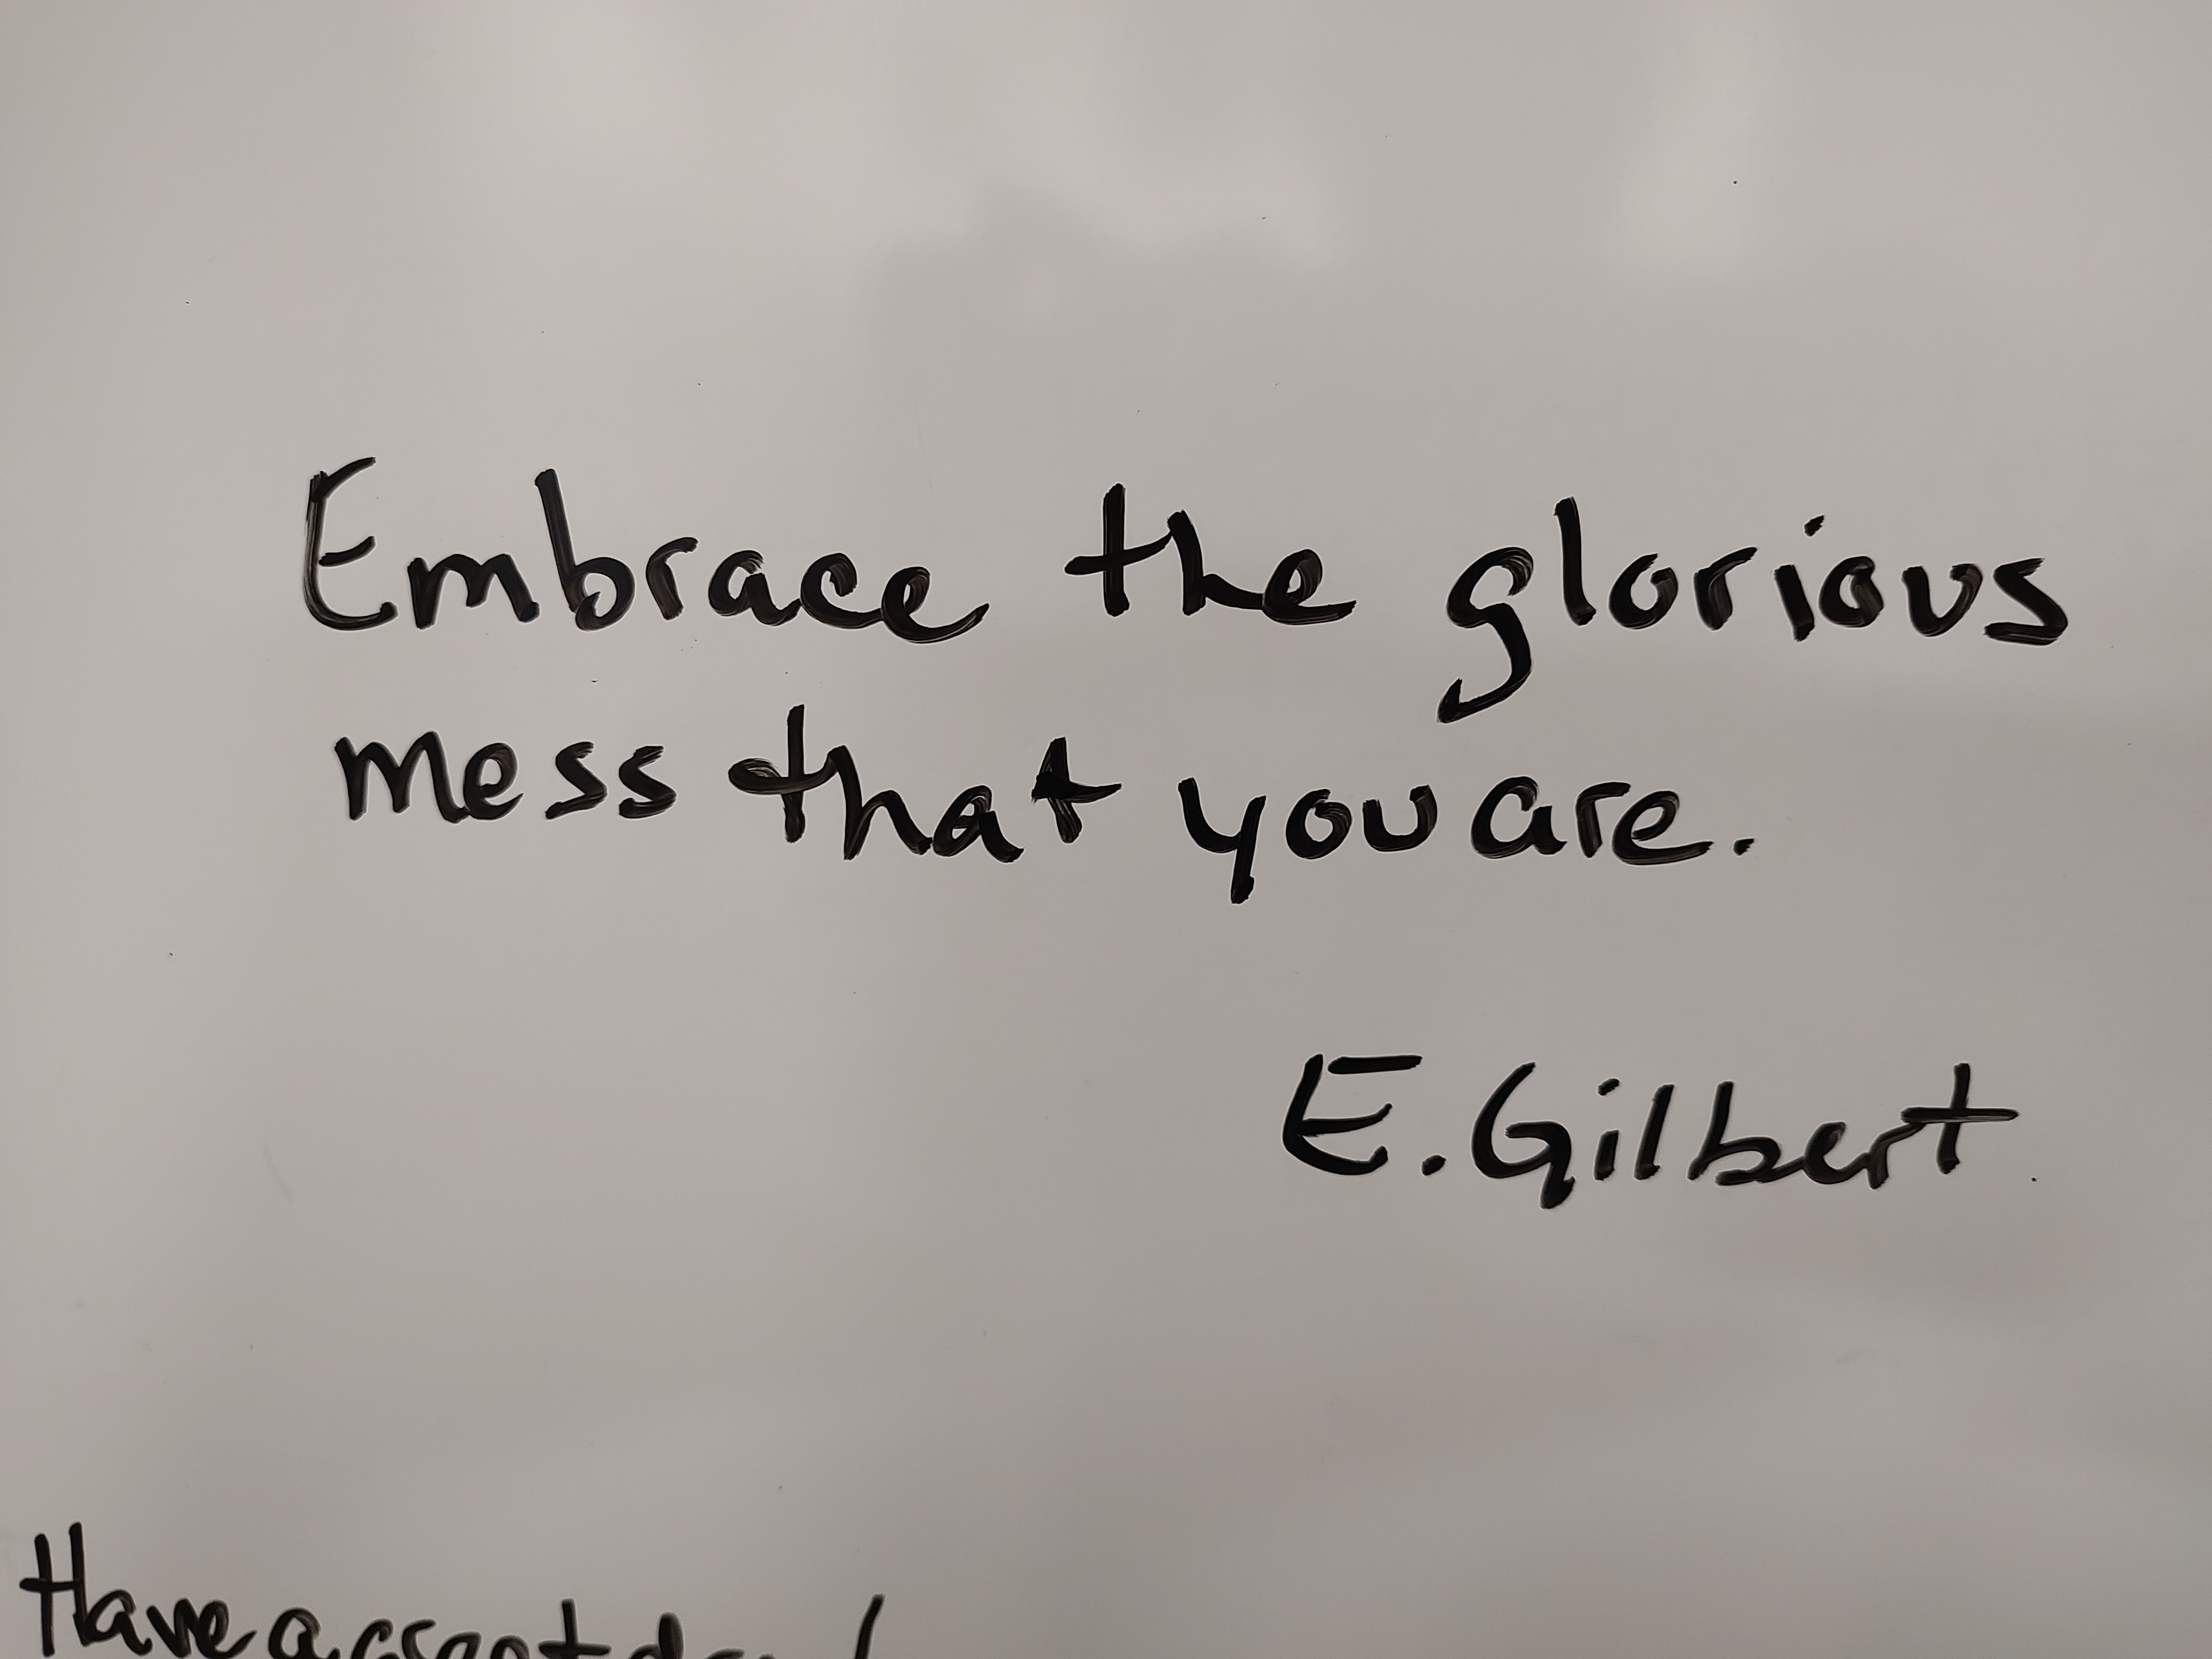 Embrace the glorious
mess that you are.
E. Gilbert
Have a great day!